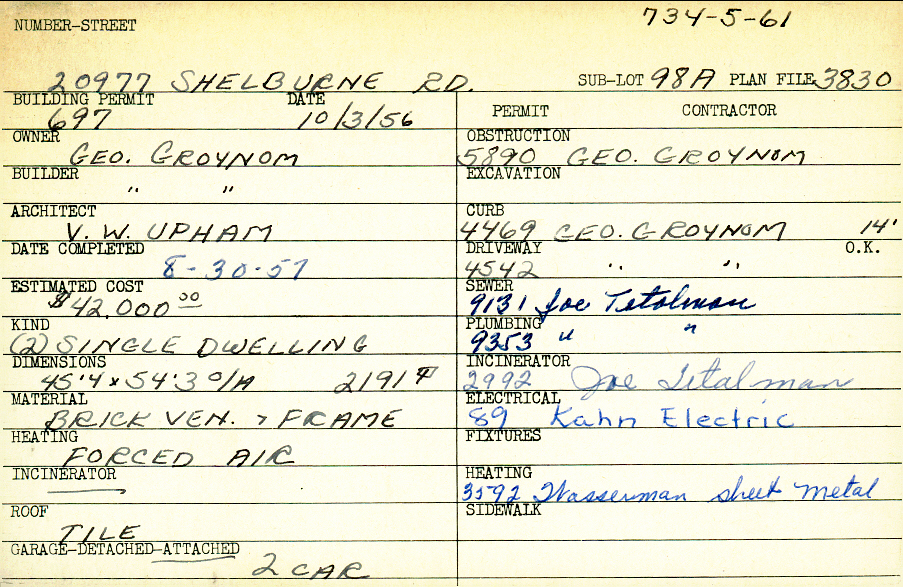 734-5-61
NUMBER-STREET
20977 SHELBURNE RD. SUB-LOT 98A PLAN FILE 3830
BUILDING PERMIT DATE
697 10/3/56
OWNER
GEO. GROYNOM
BUILDER
" "
ARCHITECT
V. W. UPHAM
DATE COMPLETED
8-30-57
ESTIMATED COST
$42,000 00
KIND
(2) SINGLE DWELLING
DIMENSIONS
45'4 x 54'3 O/A 2191
MATERIAL
BRICK VEN. & FRAME
HEATING
FORCED AIR
INCINERATOR
ROOF
TILE
GARAGE-DETACHED-ATTACHED
2 CAR
PERMIT CONTRACTOR
OBSTRUCTION
5890 GEO. GROYNOM
EXCAVATION
CURB
4469 GEO. GROYNOM 14'
DRIVEWAY O.K.
4542 " "
SEWER
9131 Joe Titalman
PLUMBING
9353 " "
INCINERATOR
2992 Joe Titalman
ELECTRICAL
89 Kahn Electric
FIXTURES
HEATING
3592 Wasserman sheet metal
SIDEWALK